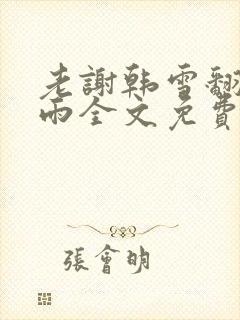 老謝韩雪翻
雨全文免費
張會明